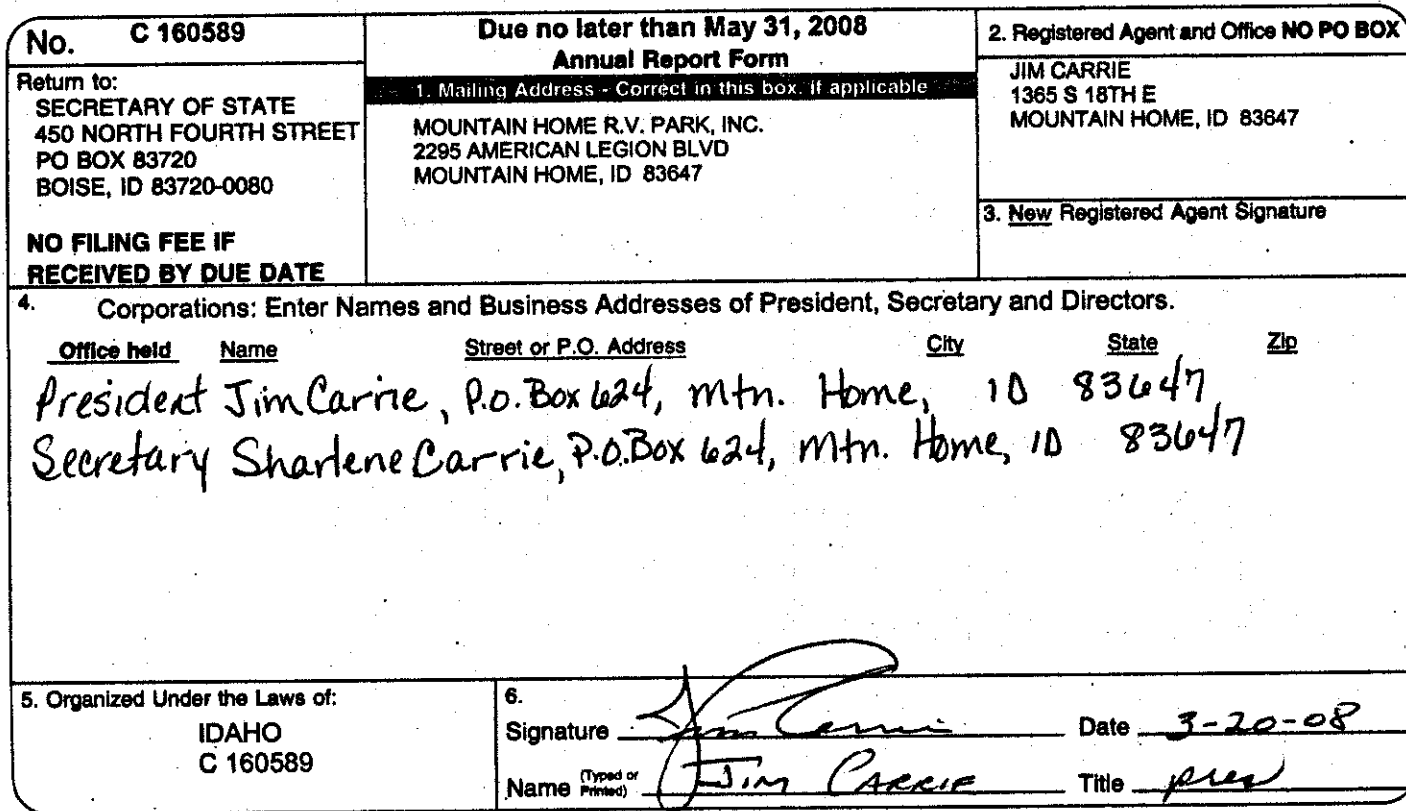 No. C 160589
Return to:
SECRETARY OF STATE
450 NORTH FOURTH STREET
PO BOX 83720
BOISE, ID 83720-0080
NO FILING FEE IF
RECEIVED BY DUE DATE
Due no later than May 31, 2008
Annual Report Form
1. Mailing Address - Correct in this box. if applicable
MOUNTAIN HOME R.V. PARK, INC.
2295 AMERICAN LEGION BLVD
MOUNTAIN HOME, ID 83647
2. Registered Agent and Office NO PO BOX
JIM CARRIE
1365 S 18TH E
MOUNTAIN HOME, ID 83647
3. New Registered Agent Signature
4. Corporations: Enter Names and Business Addresses of President, Secretary and Directors.
Office held Name Street or P.O. Address City State Zip
President Jim Carrie, P.O. Box 624, Mtn. Home, ID 83647
Secretary Sharlene Carrie, P.O. Box 624, Mtn. Home, ID 83647
5. Organized Under the Laws of:
IDAHO
C 160589
6.
Signature Jim Carrie Date 3-20-08
Name (Typed or Printed) JIM CARRIE Title pres